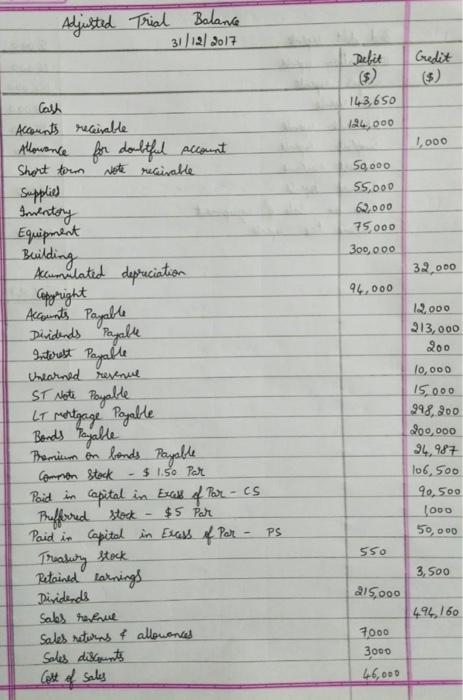 Adjusted Trial Balance
31/12/2017
Debit Credit
($) ($)
Cash 143,650
Accounts receivable 124,000
Allowance for doubtful account 1,000
Short term Note receivable 50,000
Supplies 55,000
Inventory 62,000
Equipment 75,000
Building 300,000
Accumulated depreciation 32,000
Copyright 94,000
Accounts Payable 12,000
Dividends Payable 213,000
Interest Payable 200
Unearned revenue 10,000
ST Note Payable 15,000
LT mortgage Payable 298,200
Bonds Payable 200,000
Premium on bonds Payable 24,987
Common Stock - $ 1.50 Par 106,500
Paid in Capital in Excess of Par - CS 90,500
Preffered stock - $5 Par 1,000
Paid in Capital in Excess of Par - PS 50,000
Treasury Stock 550
Retained earnings 3,500
Dividends 215,000
Sales revenue 494,160
Sales returns & allowances 7,000
Sales discounts 3000
Cost of sales 46,000